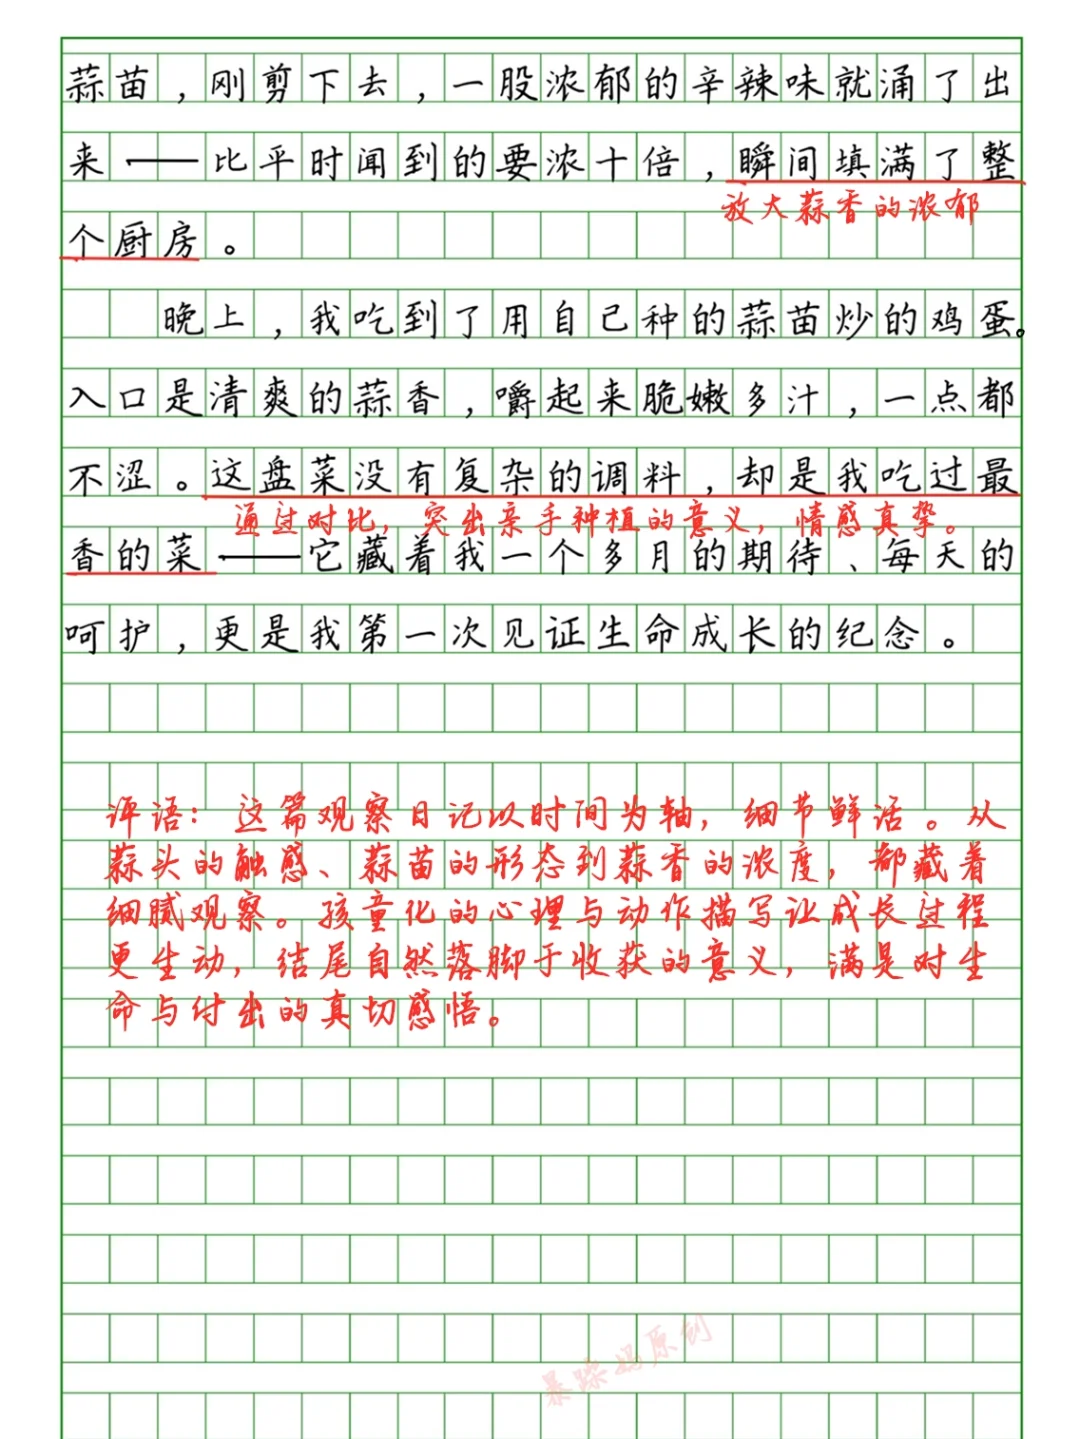 蒜苗，刚剪下去，一股浓郁的辛辣味就涌了出
来——比平时闻到的要浓十倍，瞬间填满了整
放大蒜香的浓郁
个厨房。
晚上，我吃到了用自己种的蒜苗炒的鸡蛋。
入口是清爽的蒜香，嚼起来脆嫩多汁，一点都
不涩。这盘菜没有复杂的调料，却是我吃过最
通过对比，突出亲手种植的意义，情感真挚。
香的菜——它藏着我一个多月的期待、每天的
呵护，更是我第一次见证生命成长的纪念。
评语：这篇观察日记以时间为轴，细节鲜活。从
蒜头的触感、蒜苗的形态到蒜香的浓度，都藏着
细腻观察。孩童化的心理与动作描写让成长过程
更生动，结尾自然落脚于收获的意义，满是对生
命与付出的真切感悟。
暴躁妈原创